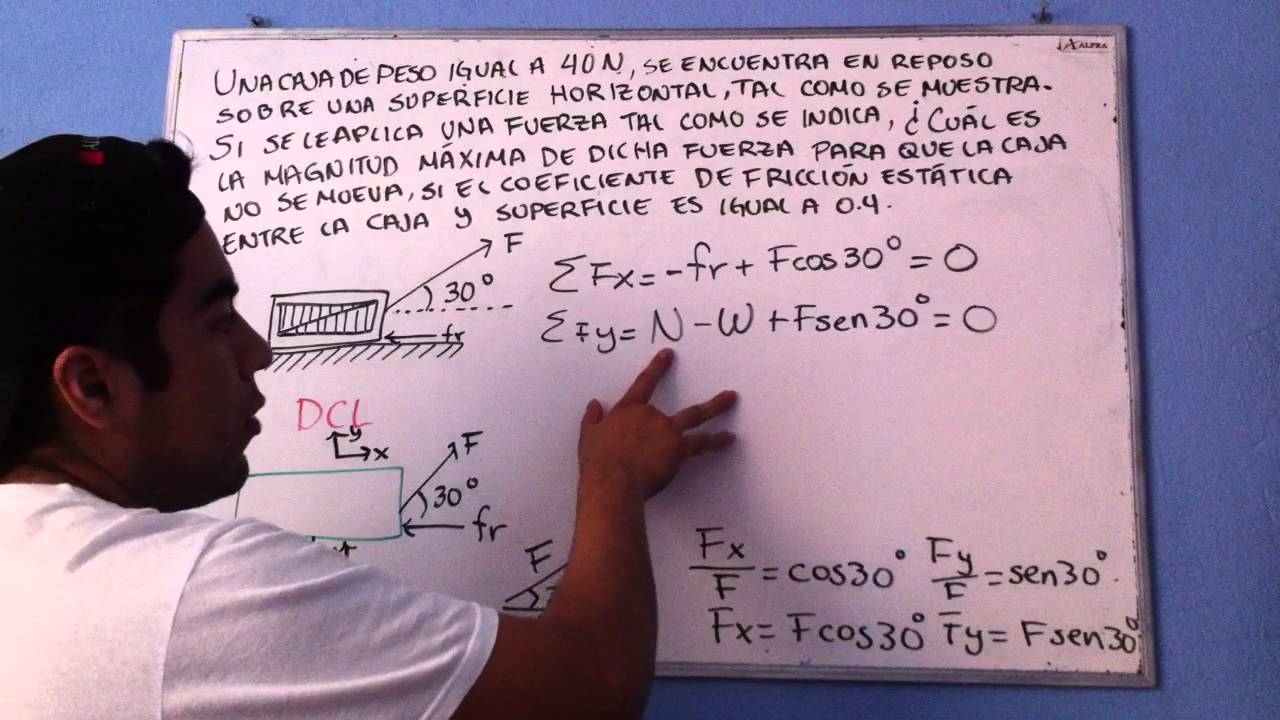 ALFRA
UNA CAJA DE PESO IGUAL A 40N, SE ENCUENTRA EN REPOSO
SOBRE UNA SUPERFICIE HORIZONTAL, TAL COMO SE MUESTRA.
SI SE LE APLICA UNA FUERZA TAL COMO SE INDICA, ¿CUÁL ES
LA MAGNITUD MÁXIMA DE DICHA FUERZA PARA QUE LA CAJA
NO SE MUEVA, SI EL COEFICIENTE DE FRICCIÓN ESTÁTICA
ENTRE LA CAJA Y SUPERFICIE ES IGUAL A 0.4.
F
30°
fr
ΣFx=-fr+Fcos30°=0
ΣFy=N-W+Fsen30°=0
DCL
y
x
F
30°
fr
F
Fx/F=cos30° Fy/F=sen30°.
Fx=Fcos30° Fy=Fsen30°